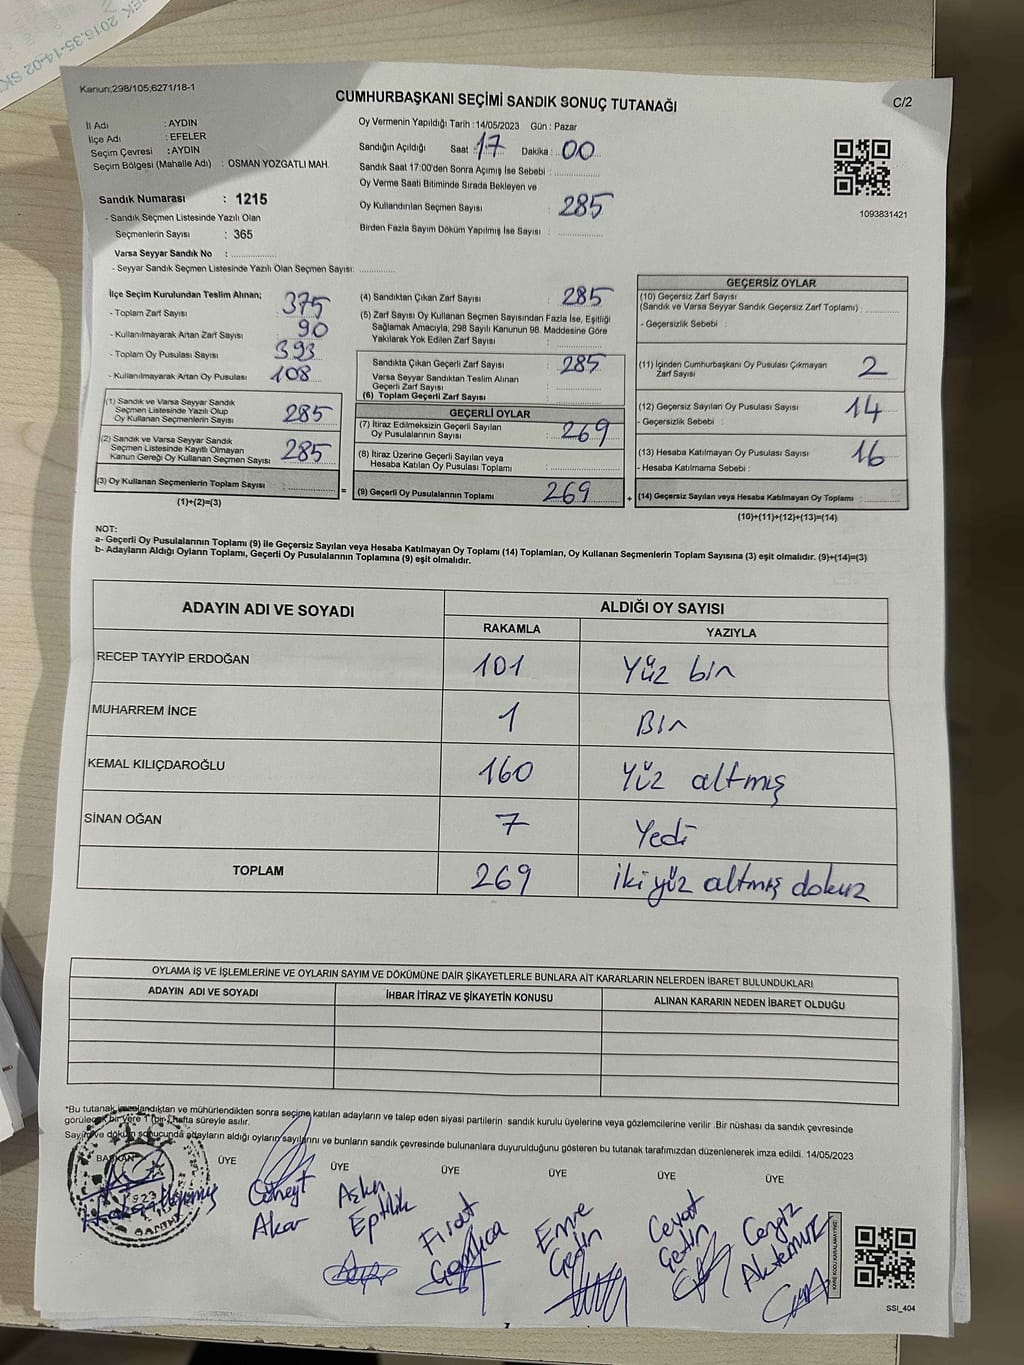 EK 2016.35-14-02 SK
Kanun;298/105;6271/18-1
CUMHURBAŞKANI SEÇİMİ SANDIK SONUÇ TUTANAĞI
C/2
İl Adı : AYDIN
İlçe Adı : EFELER
Seçim Çevresi : AYDIN
Seçim Bölgesi (Mahalle Adı) : OSMAN YOZGATLI MAH.
Sandık Numarası : 1215
- Sandık Seçmen Listesinde Yazılı Olan
Seçmenlerin Sayısı : 365
Varsa Seyyar Sandık No :
- Seyyar Sandık Seçmen Listesinde Yazılı Olan Seçmen Sayısı:
Oy Vermenin Yapıldığı Tarih : 14/05/2023 Gün : Pazar
Sandığın Açıldığı Saat : 17 Dakika : 00
Sandık Saat 17:00'den Sonra Açımış İse Sebebi :
Oy Verme Saati Bitiminde Sırada Bekleyen ve
Oy Kullandırılan Seçmen Sayısı : 285
Birden Fazla Sayım Döküm Yapılmış İse Sayısı :
1093831421
İlçe Seçim Kurulundan Teslim Alınan;
- Toplam Zarf Sayısı : 375
- Kullanılmayarak Artan Zarf Sayısı : 90
- Toplam Oy Pusulası Sayısı : 393
- Kullanılmayarak Artan Oy Pusulası : 108
(1) Sandık ve Varsa Seyyar Sandık
Seçmen Listesinde Yazılı Olup
Oy Kullanan Seçmenlerin Sayısı : 285
(2) Sandık ve Varsa Seyyar Sandık
Seçmen Listesinde Kayıtlı Olmayan
Kanun Gereği Oy Kullanan Seçmen Sayısı : 285
(3) Oy Kullanan Seçmenlerin Toplam Sayısı :
(1)+(2)=(3)
(4) Sandıktan Çıkan Zarf Sayısı : 285
(5) Zarf Sayısı Oy Kullanan Seçmen Sayısından Fazla İse, Eşitliği
Sağlamak Amacıyla; 298 Sayılı Kanunun 98. Maddesine Göre
Yakılarak Yok Edilen Zarf Sayısı :
Sandıkta Çıkan Geçerli Zarf Sayısı : 285
Varsa Seyyar Sandıktan Teslim Alınan
Geçerli Zarf Sayısı :
(6) Toplam Geçerli Zarf Sayısı :
GEÇERLİ OYLAR
(7) İtiraz Edilmeksizin Geçerli Sayılan
Oy Pusulalarının Sayısı : 269
(8) İtiraz Üzerine Geçerli Sayılan veya
Hesaba Katılan Oy Pusulası Toplamı :
= (9) Geçerli Oy Pusulalarının Toplamı 269 +
GEÇERSİZ OYLAR
(10) Geçersiz Zarf Sayısı
(Sandık ve Varsa Seyyar Sandık Geçersiz Zarf Toplamı) :
- Geçersizlik Sebebi :
(11) İçinden Cumhurbaşkanı Oy Pusulası Çıkmayan
Zarf Sayısı : 2
(12) Geçersiz Sayılan Oy Pusulası Sayısı : 14
- Geçersizlik Sebebi :
(13) Hesaba Katılmayan Oy Pusulası Sayısı : 16
- Hesaba Katılmama Sebebi :
(14) Geçersiz Sayılan veya Hesaba Katılmayan Oy Toplamı :
(10)+(11)+(12)+(13)=(14)
NOT:
a- Geçerli Oy Pusulalarının Toplamı (9) ile Geçersiz Sayılan veya Hesaba Katılmayan Oy Toplamı (14) Toplamları, Oy Kullanan Seçmenlerin Toplam Sayısına (3) eşit olmalıdır. (9)+(14)=(3)
b- Adayların Aldığı Oyların Toplamı, Geçerli Oy Pusulalarının Toplamına (9) eşit olmalıdır.
ADAYIN ADI VE SOYADI ALDIĞI OY SAYISI
RAKAMLA YAZIYLA
RECEP TAYYİP ERDOĞAN 101 Yüz bir
MUHARREM İNCE 1 Bir
KEMAL KILIÇDAROĞLU 160 Yüz altmış
SİNAN OĞAN 7 Yedi
TOPLAM 269 iki yüz altmış dokuz
OYLAMA İŞ VE İŞLEMLERİNE VE OYLARIN SAYIM VE DÖKÜMÜNE DAİR ŞİKAYETLERLE BUNLARA AİT KARARLARIN NELERDEN İBARET BULUNDUKLARI
ADAYIN ADI VE SOYADI İHBAR İTİRAZ VE ŞİKAYETİN KONUSU ALINAN KARARIN NEDEN İBARET OLDUĞU
*Bu tutanak imzalandıktan ve mühürlendikten sonra seçime katılan adayların ve talep eden siyasi partilerin sandık kurulu üyelerine veya gözlemcilerine verilir .Bir nüshası da sandık çevresinde
görülecek bir yere 1 (bir) hafta süreyle asılır.
Sayım ve döküm sonucunda adayların aldığı oyların sayılarını ve bunların sandık çevresinde bulunanlara duyurulduğunu gösteren bu tutanak tarafımızdan düzenlenerek imza edildi. 14/05/2023
BAŞKAN ÜYE ÜYE ÜYE ÜYE ÜYE ÜYE
Cüneyt
Akar
Aşkın
Eptilik
Fırat
Çamlıca
Emre
Çetin
Cevat
Çetin
Cengiz
Aktemur
KARE KODU KARALAMAYINIZ!
SSI_404